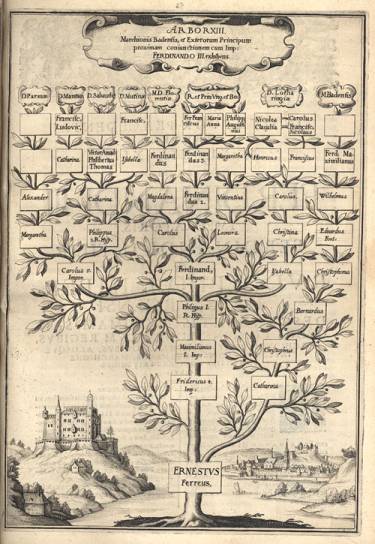 ARBOR XIII.
Marchionis Badensis, et Exterorum Principum
proximam coniunctionem cum Imp:
FERDINANDO III. exhibens
D. Parmae
D. Mantuae
D. Sabaudiae
D. Mutinae
M.D. Florentiae
D. Lotharingia
M. Badensis
Francisc, Ludovic,
Francisc,
Maria Anna
Nicolea Claudia
Carolus
Francisc,
Ferd. Maximilianus
Catharina
Victor Amadi
Philibertus
Thomas
Ysabella
Ferdinandus
Ferdinandus 3.
Margaretha
Henricus
Franciscus
Alexander
Catharina
Magdalena
Ferdinandus 2.
Vincentius
Carolus
Wilhelmus
Margaretha
Philippus
2. R. Hisp.
Carolus
Leonora
Christina
Eduardus
Fort.
Carolus 5.
Imper.
Ferdinand,
I. Imper.
Ysabella
Christophorus
Philippus I.
R. Hisp.
Bernardus
Maximilianus
I. Imp:
Christophorus
Fridericus 4.
Imp:
Catharina
ERNESTVS
Ferreus,